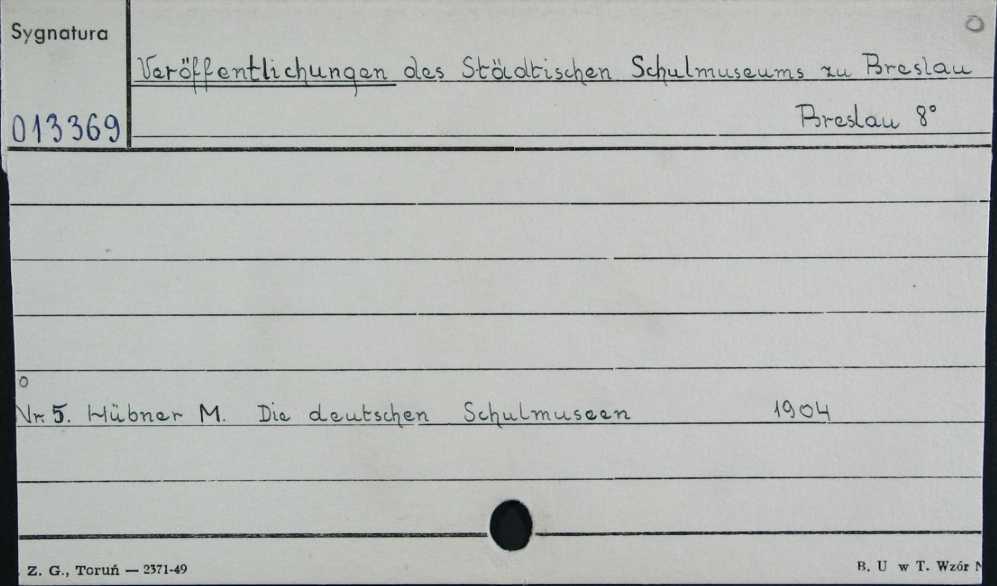 Sygnatura
O
Veröffentlichungen des Städtischen Schulmuseums zu Breslau
013369
Breslau 8°
O
Nr. 5. Hübner M. Die deutschen Schulmuseen 1904
Z. G., Toruń — 2371-49
B. U w T. Wzór N